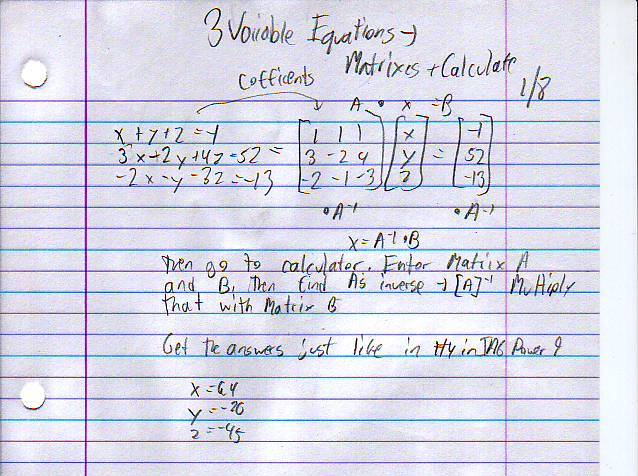 3 Variable Equations →
Matrixes + Calculate
Cofficents
1/8
A • x = B
x + y + z = -1 [1 1 1] [x] [-1]
3x + 2y + 4z = 52 = [3 -2 4] [y] = [52]
-2x - y - 3z = -13 [-2 -1 -3] [z] [-13]
• A⁻¹ • A⁻¹
x = A⁻¹ • B
Then go to calculator. Enter Matrix A
and B, then find A's inverse → [A]⁻¹ Multiply
that with Matrix B
Get the answers just like in in Power
x = 64
y = -20
z = -45